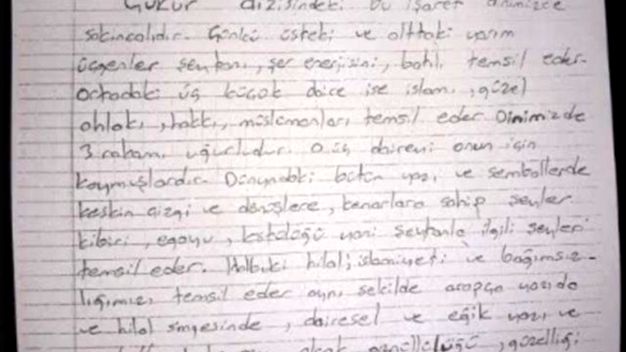 Çukur dizisindeki bu işaret dinimizce
sakıncalıdır. Çünkü üsteki ve alttaki yarım
üçgenler şeytanı, şer enerjisini, batılı temsil eder.
Ortadaki üç küçük daire ise islamı, güzel
ahlakı, hakkı, müslümanları temsil eder. Dinimizde
3 rakamı uğurludur. O üç daireyi onun için
koymuşlardır. Dünyadaki bütün yazı ve sembollerde
keskin çizgi ve dönüşlere, kenarlara sahip şeyler
kibiri, egoyu, kötülüğü yani şeytanla ilgili şeyleri
temsil eder. Halbuki hilal; islamiyeti ve bağımsız-
lığımızı temsil eder aynı şekilde arapça yazıda
ve hilal simgesinde, dairesel ve eğik yazı ve
olarak güzelliği